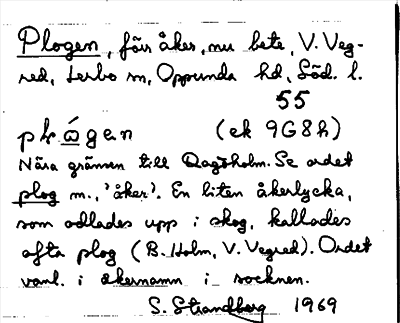 Plogen, förr åker, nu bete, V. Veg-
red, Lerbo sn, Oppunda hd, Söd. l.
55
pɫɷ́gen (ek 9G8h)
Nära gränsen till Dagsholm. Se ordet
plog m., 'åker'. En liten åkerlycka,
som odlades upp i skog, kallades
ofta plog (B. Holm, V. Vegred). Ordet
vanl. i åkernamn i socknen.
S. Strandberg 1969